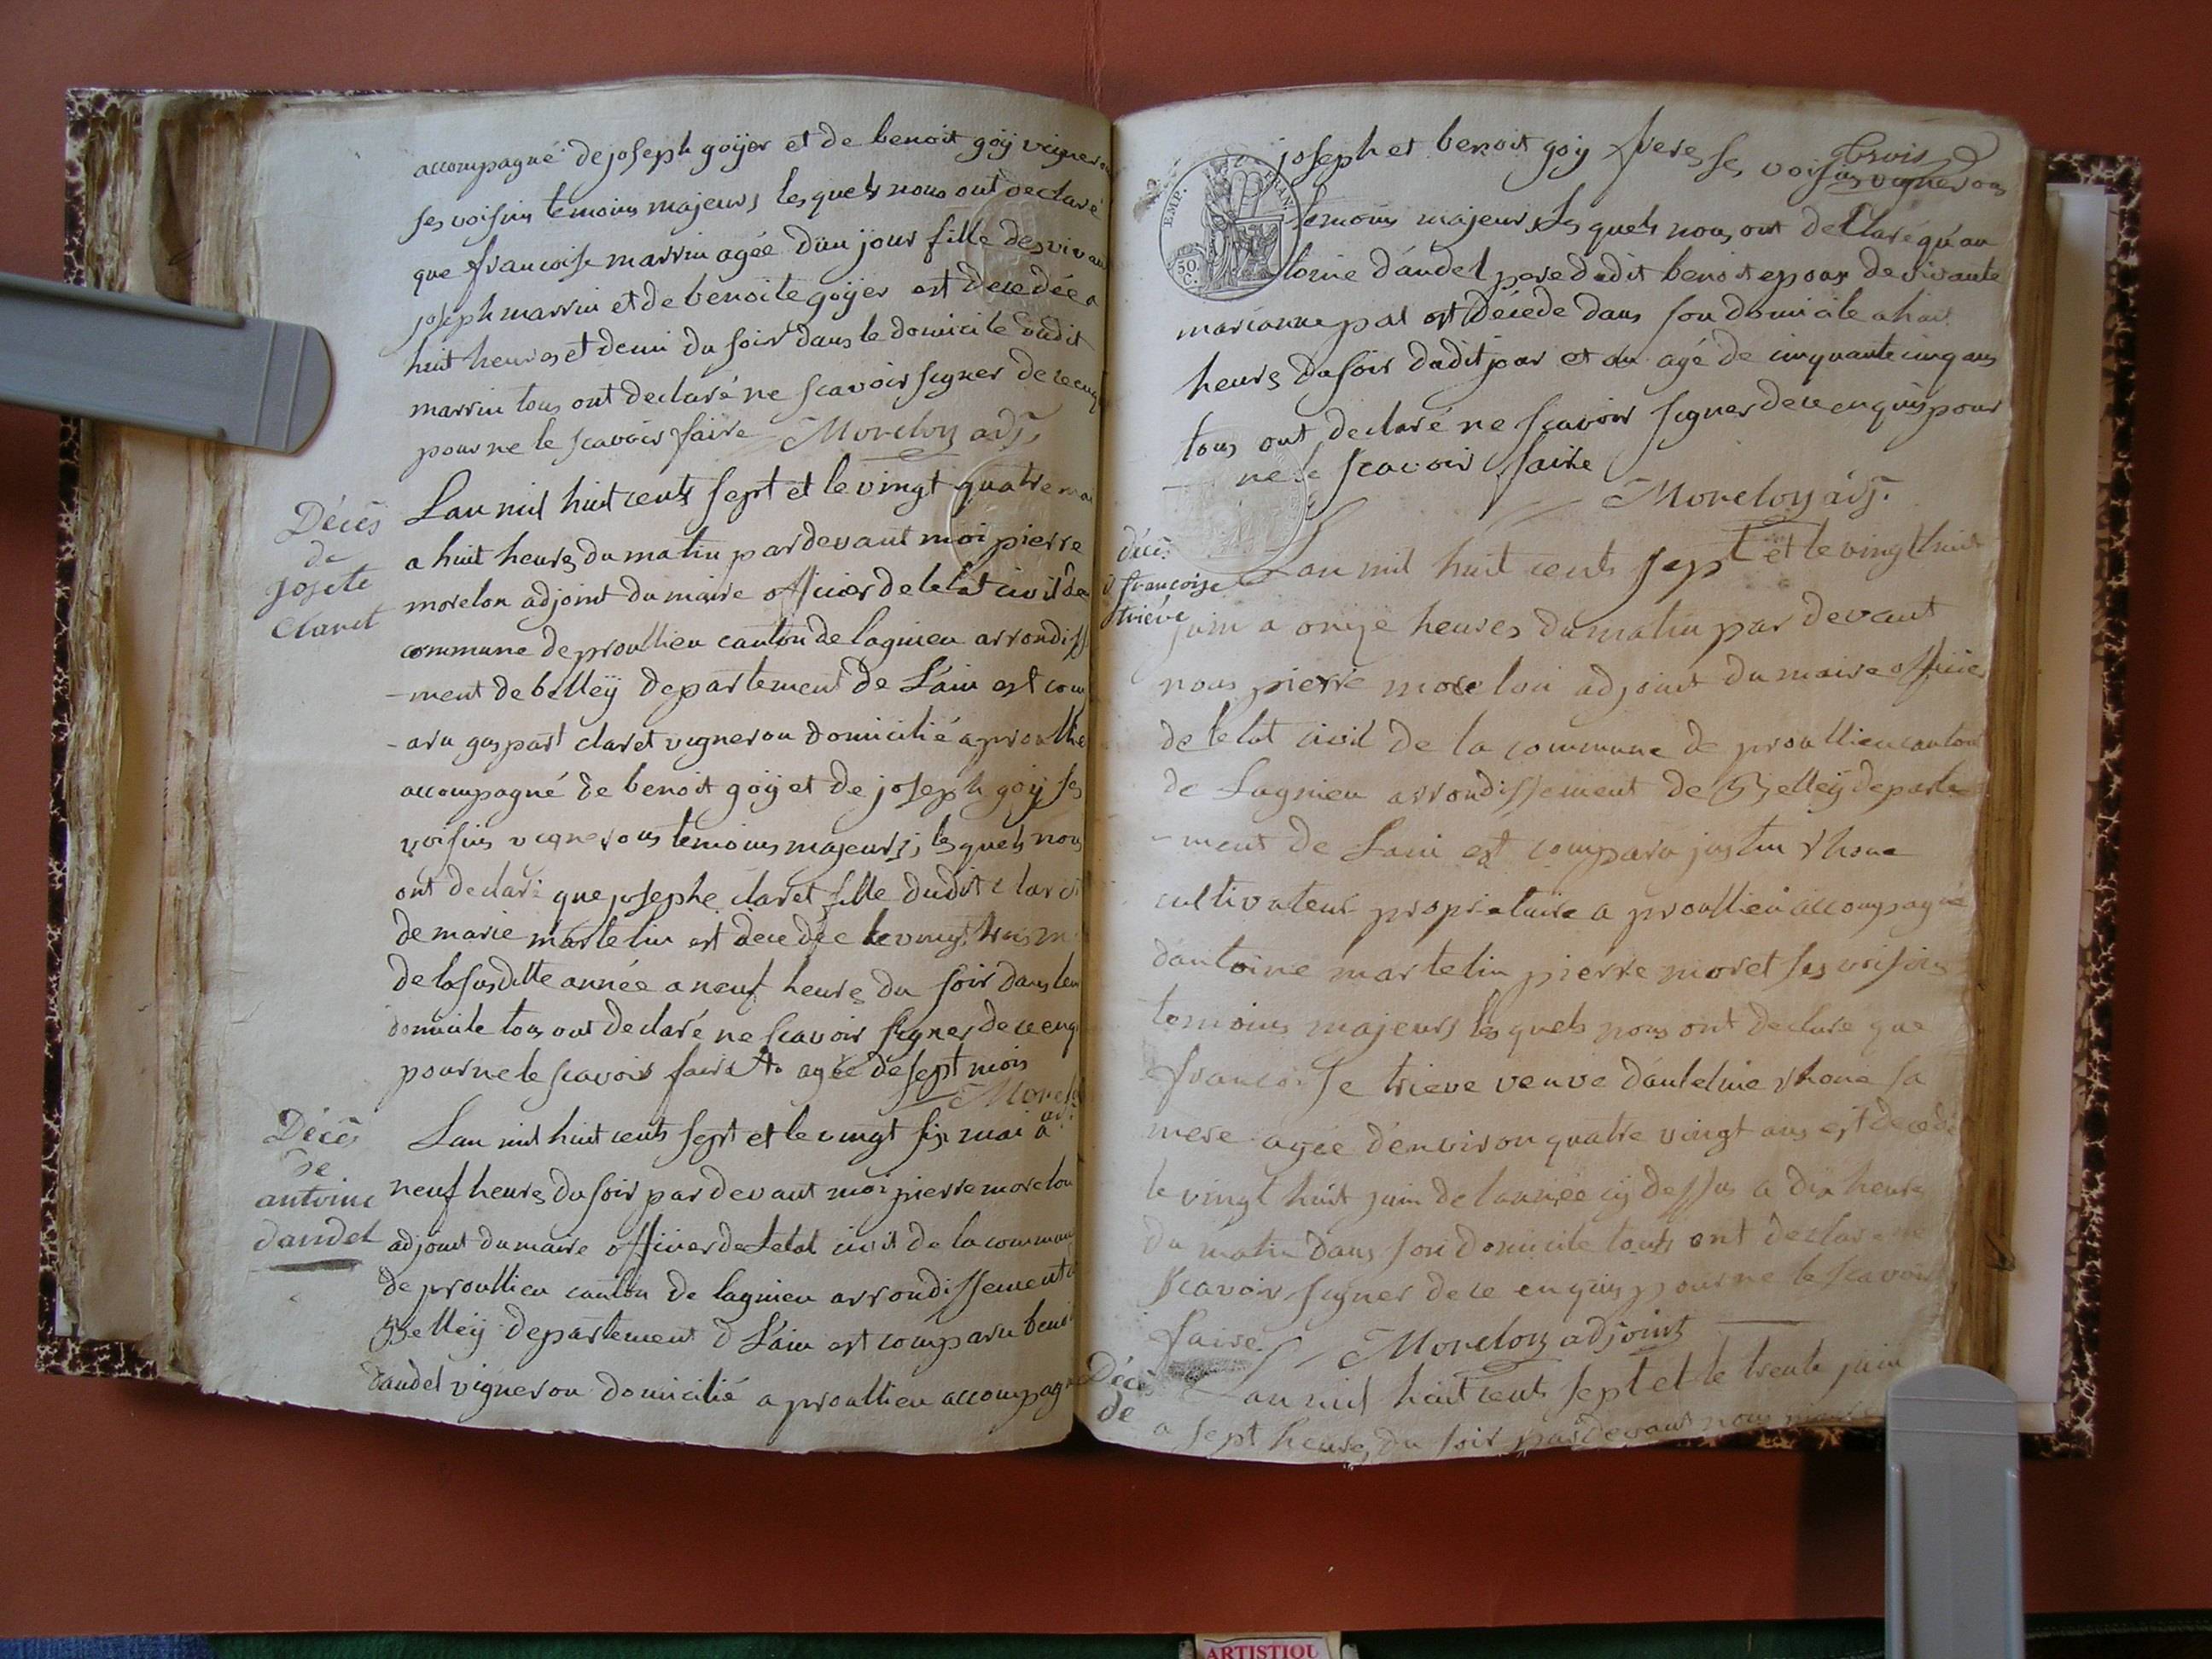 accompagné de joseph goÿer et de benoit goÿ vigneron
ses voisins temoins majeurs lesquels nous ont declaré
que francoise marrin agée d'un jour fille des vivan
joseph marrin et de benoite goÿer est decedée a
huit heures et demi du soir dans le domicile dudit
marrin tous ont declaré ne scavoir signer de ce enq
pour ne le scavoir faire Morelon adj.
Décès
de
Josete
Claret
Lan mil huit cents sept et le vingt quatre mai
a huit heures du matin par devant moi pierre
morelon adjoint du maire officier de letat civil de
commune de proullieu canton de lagnieu arrondiss
-ment de bellëÿ departement de L'ain est com
-aru gaspart claret vigneron domicilié a proullie
accompagné de benoit goÿ et de joseph goÿ ses
voisins vignerons temoins majeurs; lesquels nous
ont declaré que josephe claret fille dudit claret
de marie martelin est decedée le vingt trois m
de la susditte année a neuf heures du soir dans leur
domicile tous ont declaré ne scavoir signer de ce enq
pour ne le scavoir faire agée de sept mois
Morelon
adj.
Décès
de
antoine
dandel
Lan mil huit cents sept et le vingt six mai a
neuf heures du soir par devant moi pierre morelon
adjoint du maire officier de Letat civil de la commun
de proullieu canton de lagnieu arrondissement d
Belleÿ departement d L'ain est comparu benoi
dandel vigneron domicilié a proullieu accompagn
EMP. FRAN.
50 C.
joseph et benoit goÿ frere ses voisins vignerons
temoins majeurs Lesquels nous ont declaré qu'an
toine d'andel pere dudit benoit epoux de vivante
marianne pal est décédé dans son domicile a huit
heures du soir dudit jour et an agé de cinquante cinq ans
tous ont declaré ne scavoir signer de ce enquis pour
ne le scavoir faire
Morelon adj.
décès
d francoise
trieve
Lan mil huit cents sept et le vingt huit
juin a onze heures du matin par devant
nous pierre morelon adjoint du maire officier
de letat civil de la commune de proullieu canton
de Lagnieu arrondissement de Belleÿ departe
-ment de Lain est comparu justin rhone
cultivateur propriétaire a proullieu accompagné
dantoine martelin pierre moret ses voisins
temoins majeurs lesquels nous ont declare que
francoise trieve veuve d'antelme rhone sa
mere agée d'environ quatre vingt ans est decedé
le vingt huit juin de lannée cÿ dessus a dix heures
du matin dans son domicile touts ont declare ne
scavoir signer de ce enquis pour ne le scavoir
faire Morelon adjoint
Décès
de
Lan mil huit cents sept et le trente juin
a sept heures du soir par devant nous pierre
ARTISTIQU